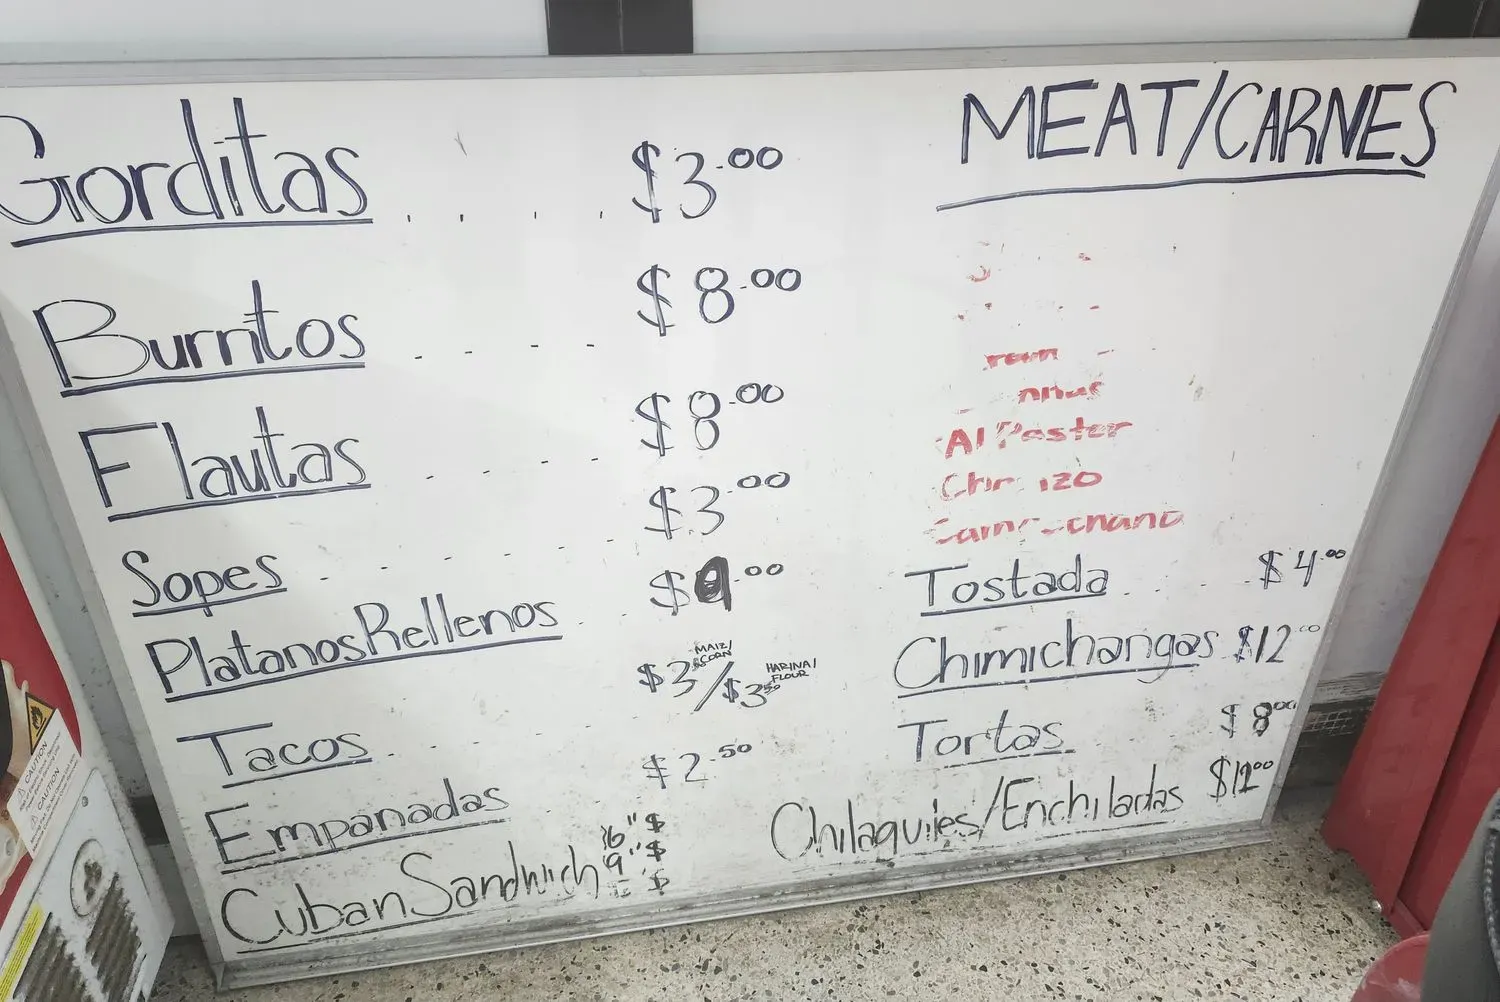 Gorditas . . . . . $3.00
Burritos . . . . $8.00
Flautas . . . . $8.00
Sopes . . . . . . $3.00
Platanos Rellenos . $9.00
Tacos . . . . . $3 MAIZ/CORN / $3.50 HARINA/FLOUR
Empanadas . $2.50
Cuban Sandwich 6" $
9" $
$
MEAT/CARNES
Al Pastor
Tostada . . . . $4.00
Chimichangas $12.00
Tortas . . . $8.00
Chilaquiles/Enchiladas $12.00
CAUTION
CAUTION